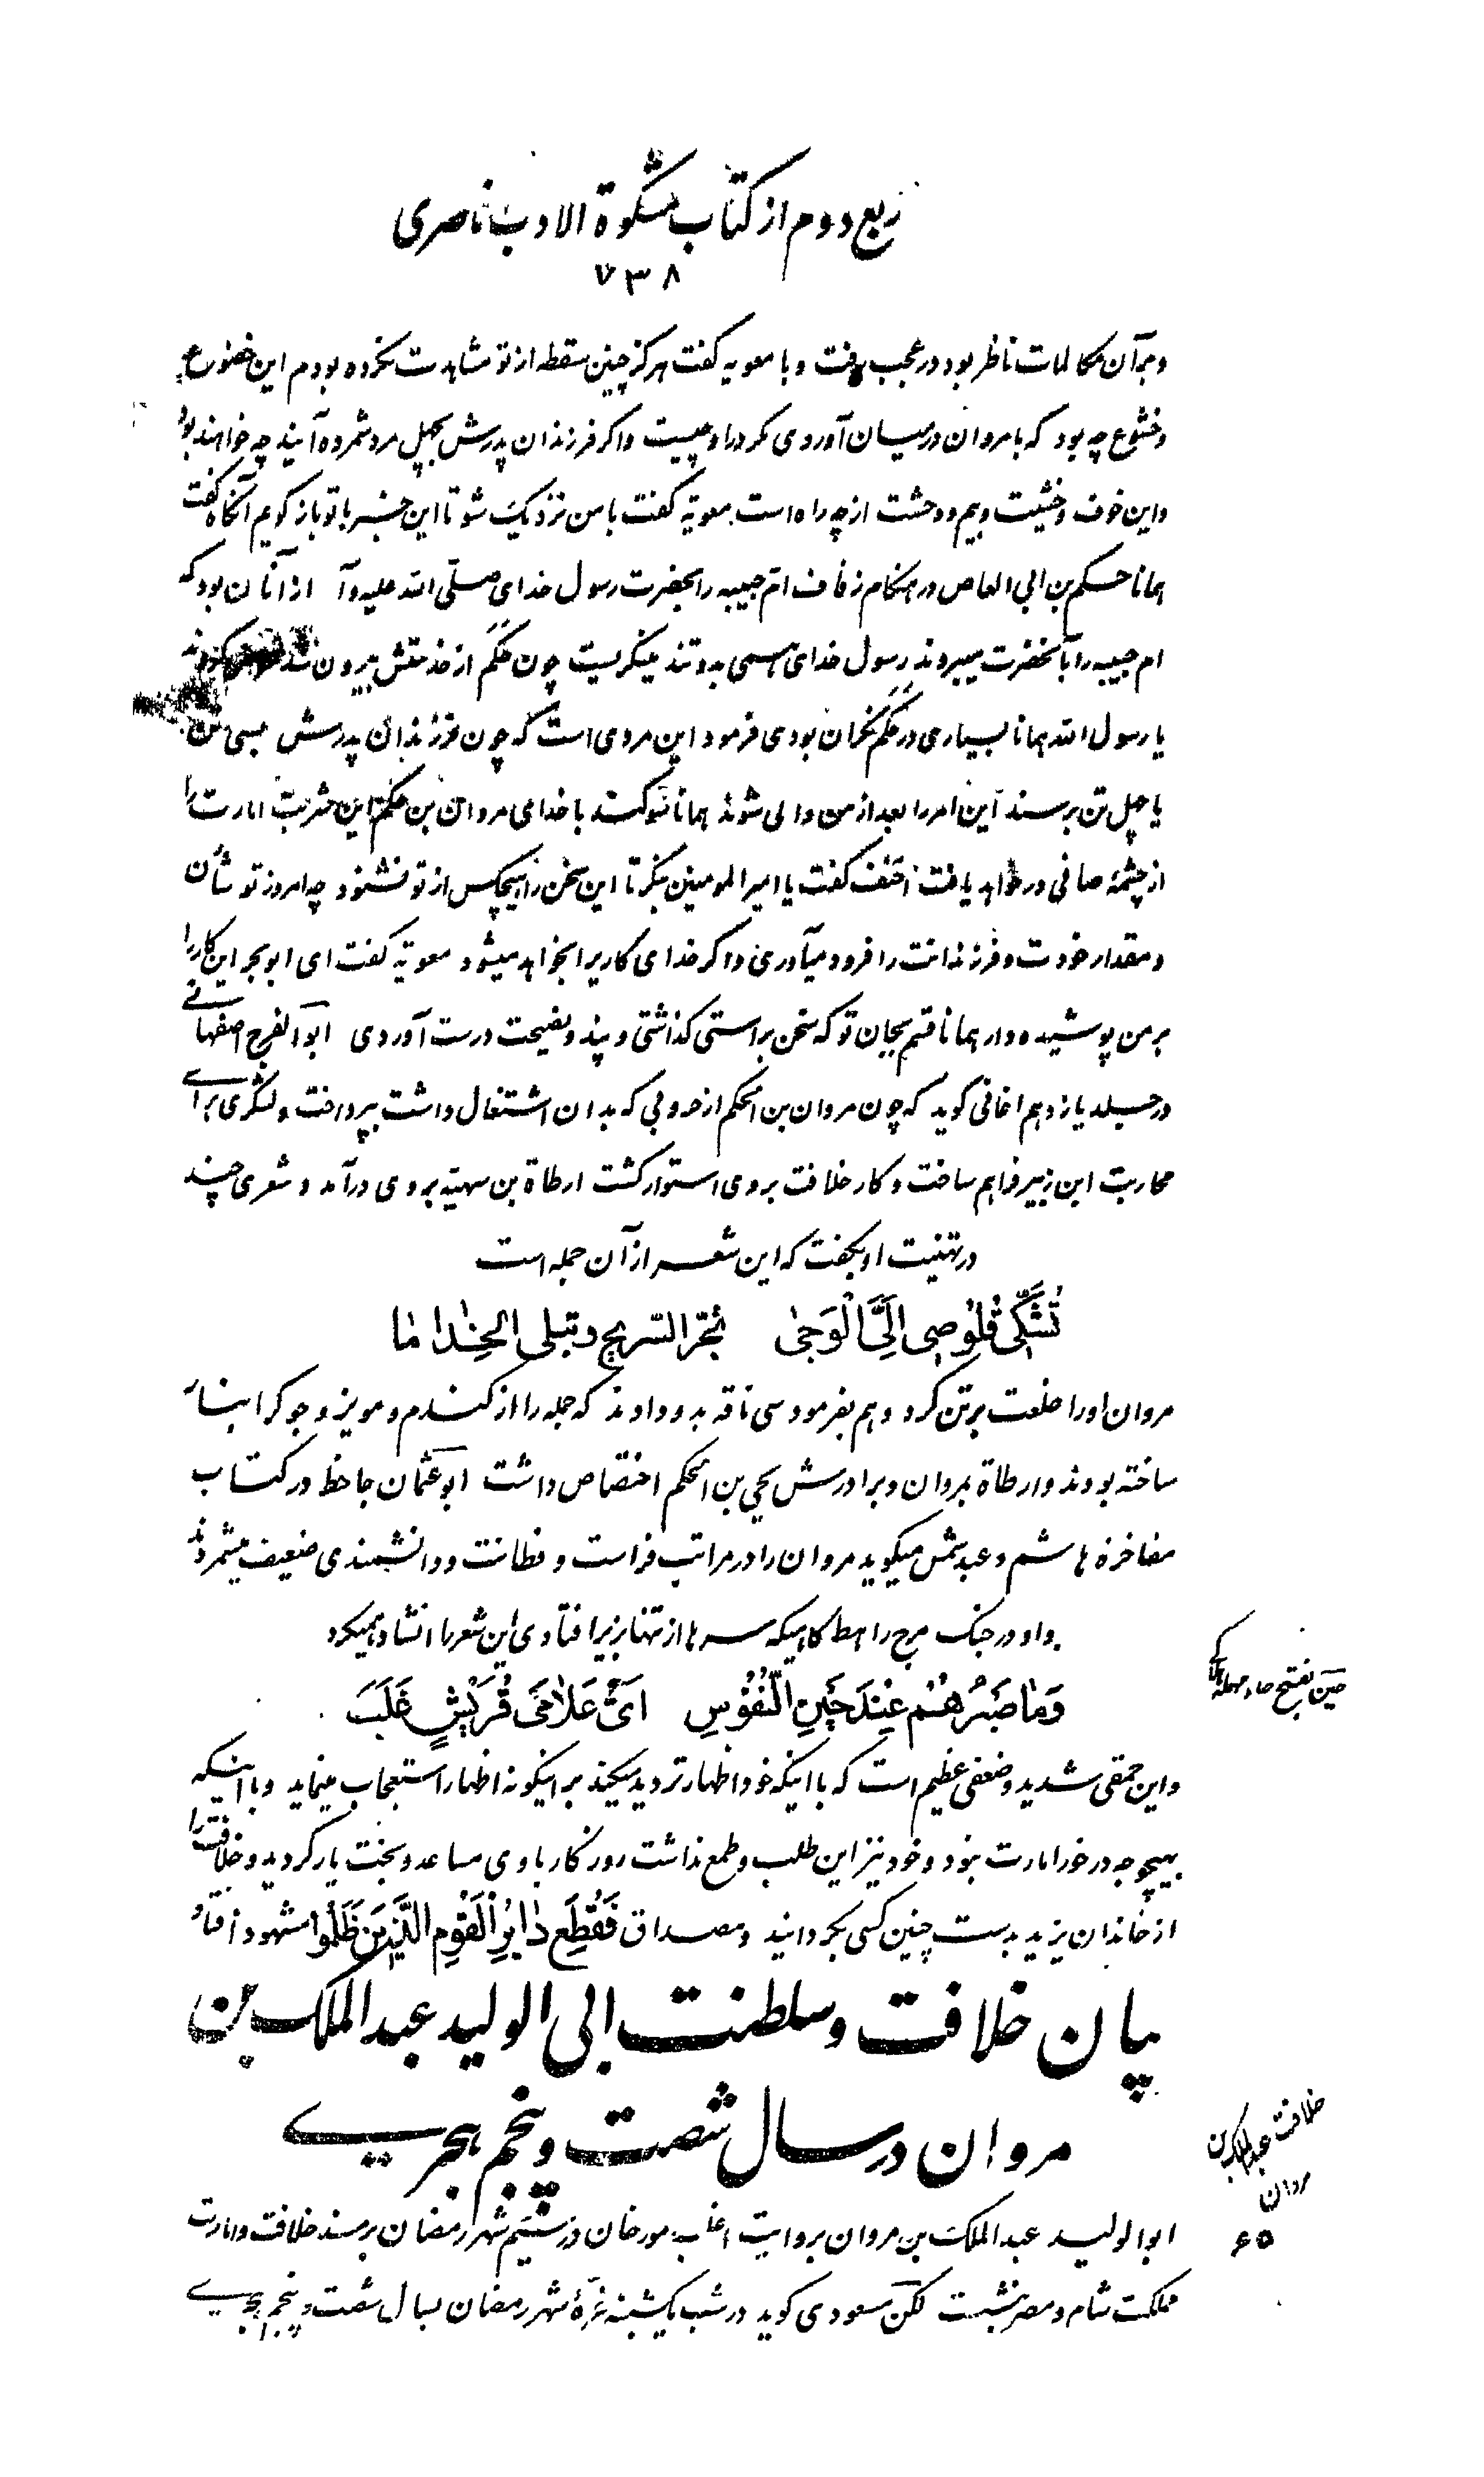 ربع دوم از کتاب مشکوة الادب ناصری
۷۳۸
و بر آن مکالمات ناظر بود در عجب رفت و با معویه گفت هرگز چنین سقطه از تو مشاهدت نکرده بودم این خضوع
و خشوع چه بود که با مروان در میان آوردی مگر در او چیست و اگر فرزندان پدرش بچهل مرد شمرده آیند چه خواهند بود
و این خوف و خشیت و بیم و وحشت از چه راه است معویة گفت با من نزدیک شو تا این خبر با تو باز گویم آنگاه گفت
همانا حکم بن ابی العاص در هنگام زفاف ام حبیبه را بحضرت رسول خدای صلّی الله علیه و آ از آنان بود که
ام حبیبه را بآنحضرت میبردند رسول خدای همی بدو تند مینگریست چون حَکَم از خدمتش بیرون شد
یا رسول الله همانا بسیار در حَکَم نگران بودی فرمود این مردی است که چون فرزندان پدرش بسی تن
یا چهل تن برسند این امر را بعد از من والی شوند همانا سوگند با خدای مروان بن حکم این شربت امارت را
از چشمهٔ صافی در خواهد یافت احنف گفت یا امیر المومنین بنگر تا این سخن را هیچکس از تو نشنود چه امروز تو شأن
و مقدار خودت و فرزندانت را فرود میآوری و اگر خدای کاریرا بخواهد میشود معویة گفت ای ابو بحر این کار را
بر من پوشیده دار همانا قسم بجان تو که سخن براستی گذاشتی و پند و نصیحت درست آوردی ابو الفرج اصفهانے
در جلد یازدهم اغانی گوید که چون مروان بن الحکم از حروبی که بدان اشتغال داشت بپرداخت و لشگری براے
محاربت ابن زبیر فراهم ساخت و کار خلافت بروی استوار گشت ارطاة بن سهیّه بروی درآمد و شعری چند
در تهنیت او بگفت که این شعر از آن جمله است
تُشَکِّی قَلُوصی اِلَیَّ الْوَجیٰ تجرّ السّریح و تبلی الخِداما
مروان او را خلعت بر تن کرد و هم بفرمود سی ناقه بدو دادند که جمله را از گندم و مویز و جو گرانبار
ساخته بودند و ارطاة بمروان و برادرش یحیی بن الحکم اختصاص داشت ابو عثمان جاحظ در کتاب
مفاخرهٔ هاشم و عبد شمس میگوید مروان را در مراتب فراست و فطانت و دانشمندی ضعیف میشمردند
و او در جنگ مرج راهط گاهیکه سرها از تنها بزیر افتادی این شعر را انشاد همیکرد
وَمٰا ضَرَّهُمْ عِنْدَ حَیْنِ النُّفُوْسِ اَیُّ غُلاٰمَیْ قُرَیْشٍ غَلَبَ
حین بفتح حاء مهمله
و این حمقی شدید و ضعفی عظیم است که با اینکه خود اظهار تردید میکند بر اینگونه اظهار استعجاب مینماید و با اینکه
بهیچوجه در خور امارت نبود و خود نیز این طلب و طمع نداشت روزگار با وی مساعد و بخت یار گردید و خلافت را
از خاندان یزید بدست چنین کسی بگردانید و مصداق فَقُطِعَ دٰابِرُ الْقَوْمِ الَّذینَ ظَلَمُوا مشهود افتاد
بیان خلافت و سلطنت ابی الولید عبد الملک بن
مروان در سال شصت و پنجم هجرے
خلافت عبد الملک بن
مروان
۶۵
ابو الولید عبد الملک بن مروان بروایت اغلب مورخان در ششم شهر رمضان بر مسند خلافت و امارت
مملکت شام و مصر بنشست لکن مسعودی گوید در شب یکشنبه غرّهٔ شهر رمضان بسال شصت و پنجم هجرے